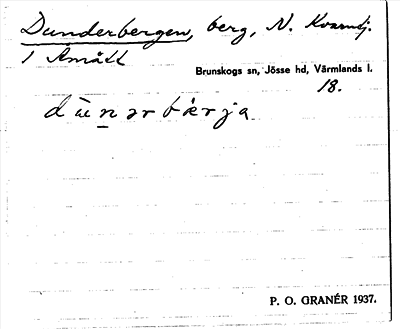 Dunderbergen, berg, N. Kvarntj.
i Åmått
Brunskogs sn, Jösse hd, Värmlands l.
18.
P. O. GRANÉR 1937.